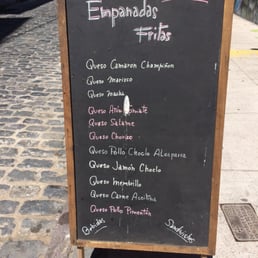 Empanadas
Fritas
Queso Camaron Champiñon
Queso Marisco
Queso Macha
Queso
Queso Salame
Queso Chorizo
Queso Pollo Choclo
Queso Jamón Choclo
Queso Membrillo
Queso Carne Aceituna
Queso Pollo Pimentón
Bebidas
Sandwiches